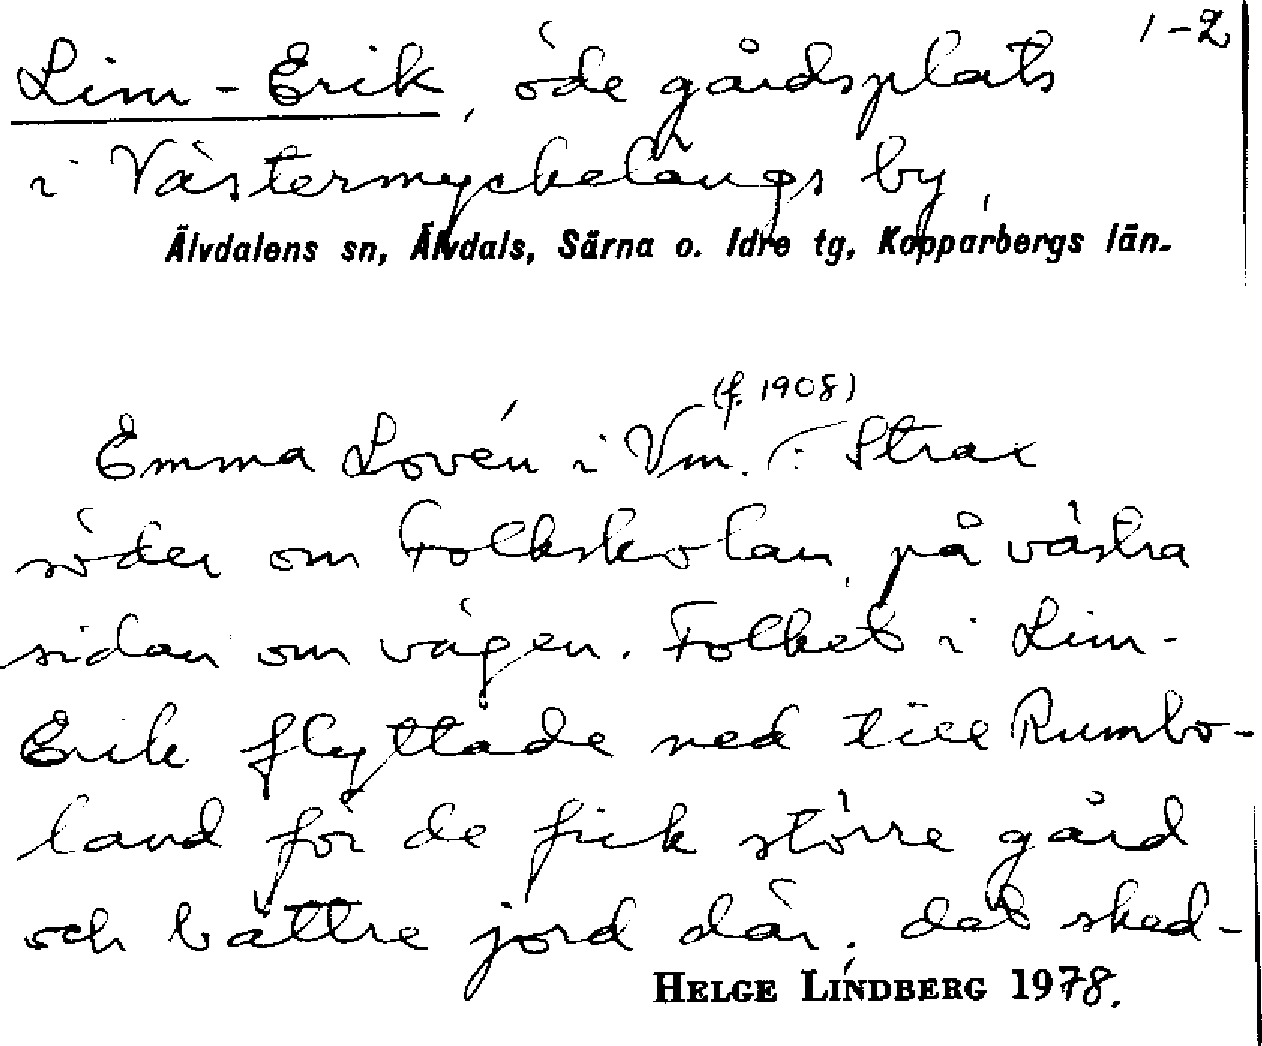 1-2
Lim-Erik, öde gårdsplats
i Västermyckelängs by,
Älvdalens sn, Älvdals, Särna o. Idre tg, Kopparbergs län.
(f. 1908)
Emma Lovén i Vm. : Strax
söder om folkskolan, på västra
sidan om vägen. Folket i Lim-
Erik flyttade ned till Rumbo-
land för de fick större gård
och bättre jord där; det sked-
HELGE LINDBERG 1978.